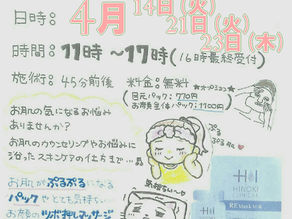 日時: 4月 14日(火)
21日(火)
23日(木)
時間: 11時〜17時(16時最終受付)
施術: 45分前後 料金: 無料
(目元パック: 770円
お顔全体パック: 1100円)
お肌の気になるお悩み
ありませんか?
お肌のカウンセリングやお悩みに
沿ったスキンケアの仕方まで…
ぷる
ぷる
気持ちいい
お肌がぷるぷるになる
パックやとても気持ちいい
お顔のツボ押しマッサージ
HINOKI